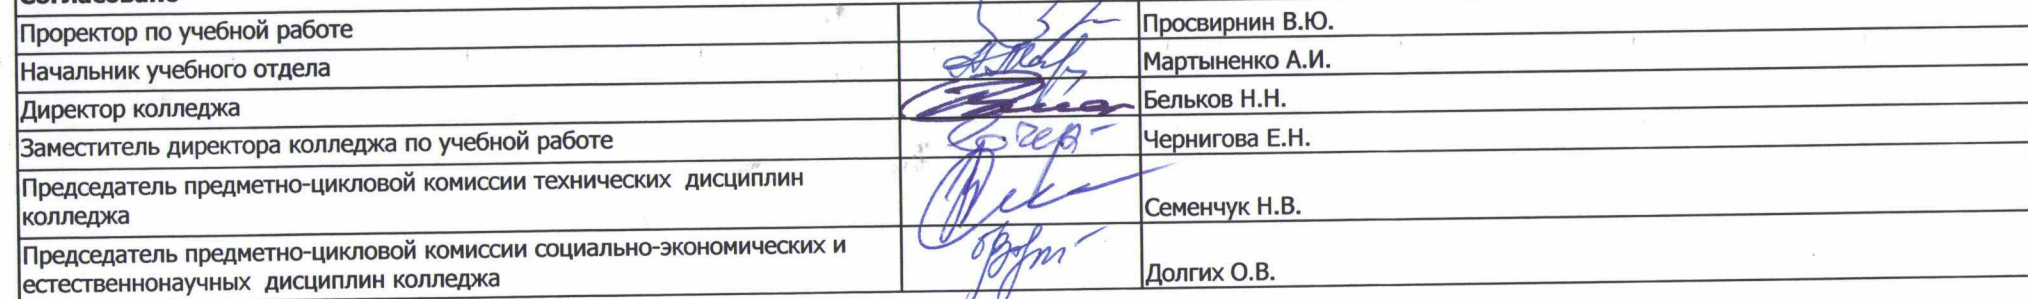 Согласовано
Проректор по учебной работе Просвирнин В.Ю.
Начальник учебного отдела Мартыненко А.И.
Директор колледжа Бельков Н.Н.
Заместитель директора колледжа по учебной работе Чернигова Е.Н.
Председатель предметно-цикловой комиссии технических дисциплин
колледжа Семенчук Н.В.
Председатель предметно-цикловой комиссии социально-экономических и
естественнонаучных дисциплин колледжа Долгих О.В.